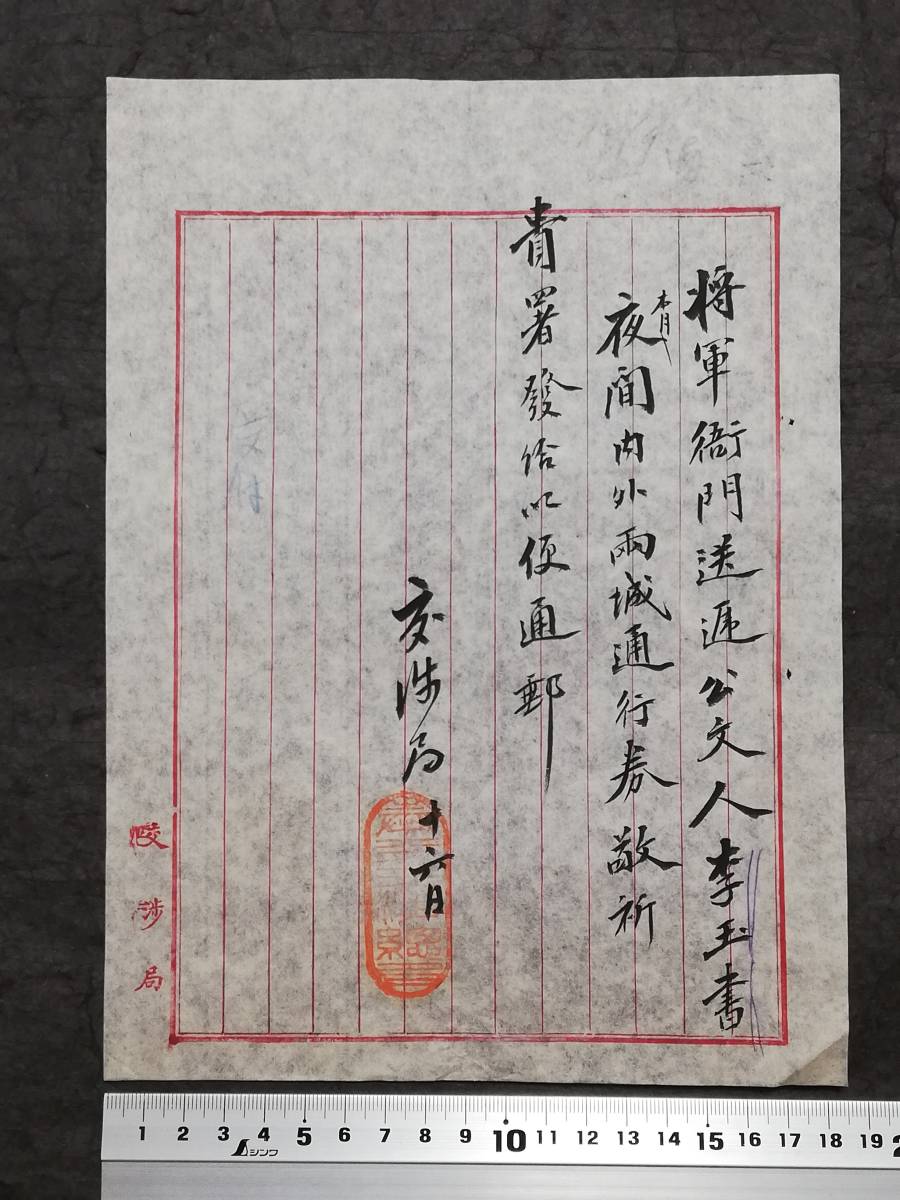 将軍衙門送递公文人李玉書
本月
夜間内外兩城通行券敬祈
貴署發給以便通郵
交涉局 十六日
交涉局
1 2 3 4 5 6 7 8 9 10 11 12 13 14 15 16 17 18 19 2
シンワ